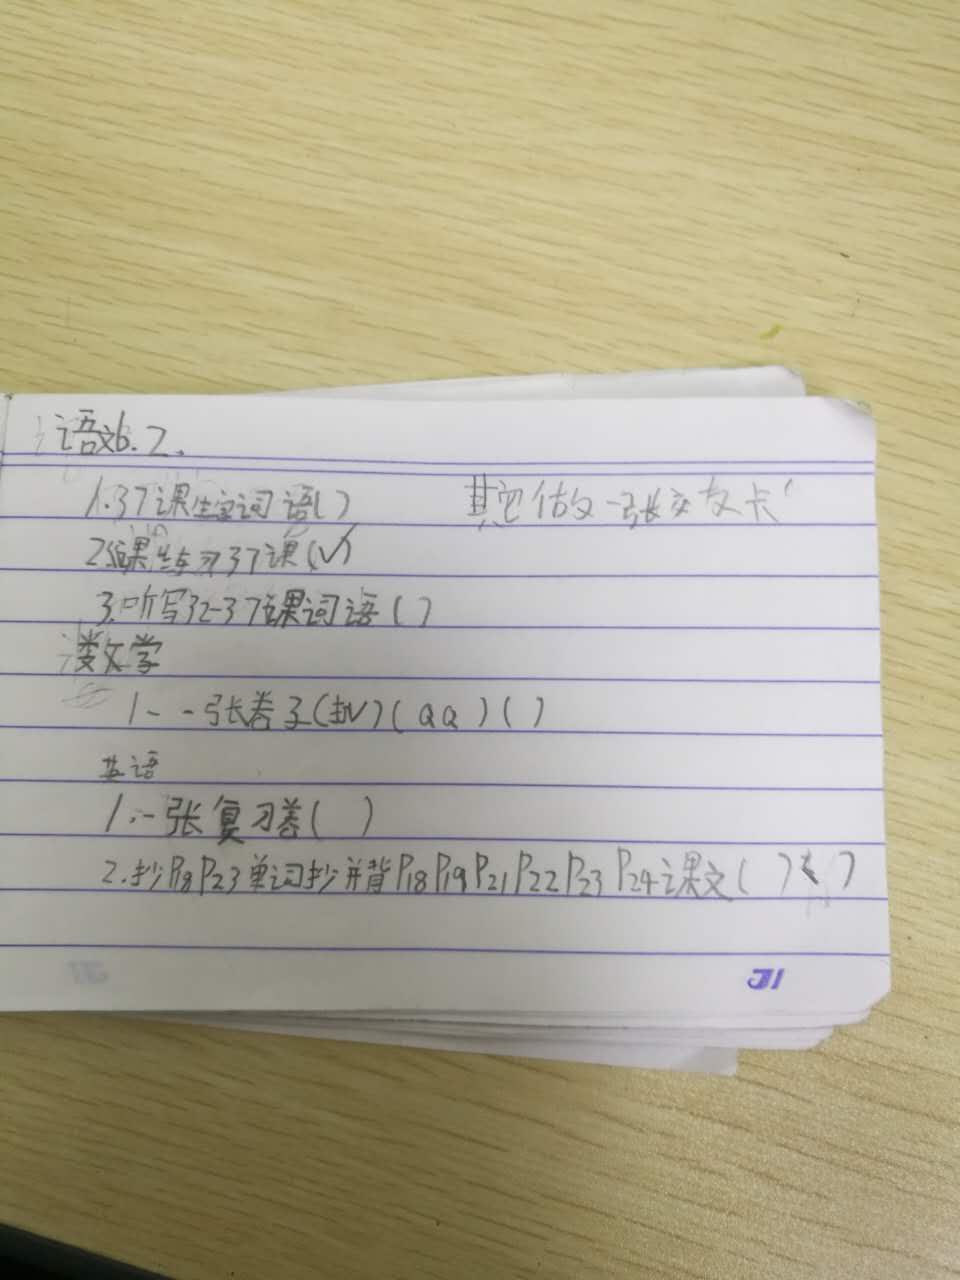 语文6.2.
1.37课生字词语()
其它做一张交友卡
2.课练习37课(√)
3.听写32-37课词语()
数学
1.一张卷子()(QQ)()
英语
1.一张复习卷()
2.抄P18P23单词抄并背P18P19P21P22P23P24课文()()